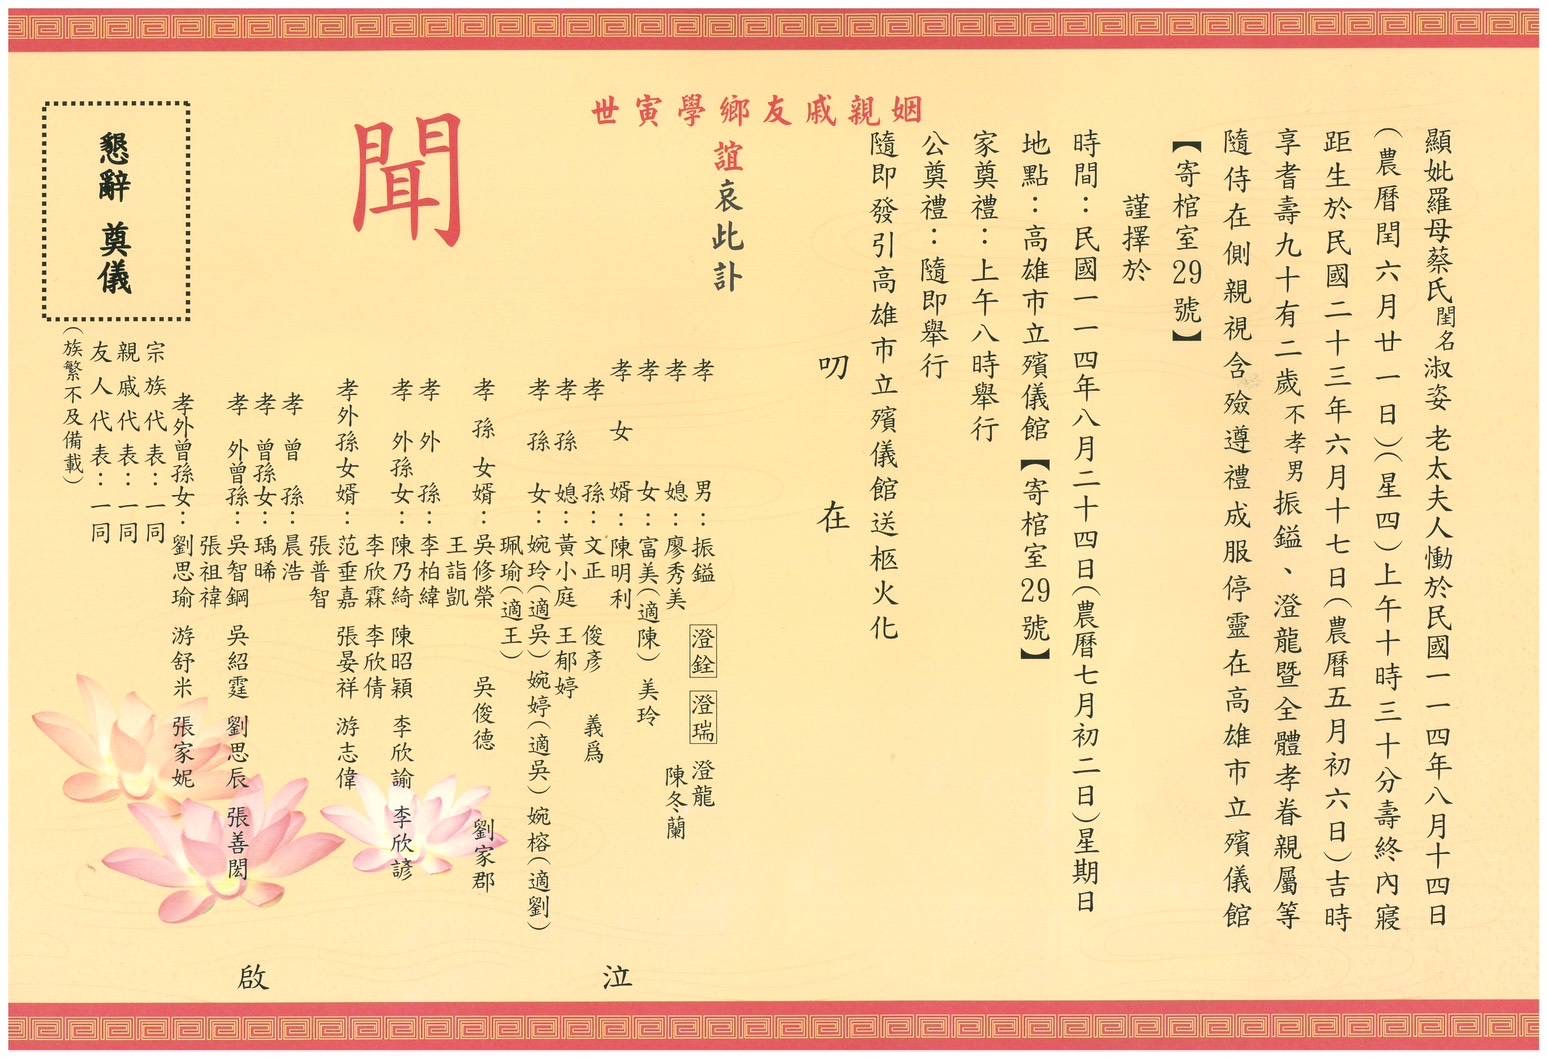 顯妣羅母蔡氏閨名淑姿老太夫人慟於民國一一四年八月十四日
（農曆閏六月廿一日）（星四）上午十時三十分壽終內寢
距生於民國二十三年六月十七日（農曆五月初六日）吉時
享耆壽九十有二歲不孝男振鎰、澄龍暨全體孝眷親屬等
隨侍在側親視含殮遵禮成服停靈在高雄市立殯儀館
【寄棺室29號】
謹擇於
時間：民國一一四年八月二十四日（農曆七月初二日）星期日
地點：高雄市立殯儀館【寄棺室29號】
家奠禮：上午八時舉行
公奠禮：隨即舉行
隨即發引高雄市立殯儀館送柩火化
叨在
姻親戚友鄉學寅世
誼哀此訃
聞
孝男：振鎰 澄銓 澄瑞 澄龍
孝媳：廖秀美 陳冬蘭
孝女：富美（適陳） 美玲
孝女婿：陳明利
孝孫：文正 俊彥 義爲
孝孫媳：黃小庭 王郁婷
孝孫女：婉玲（適吳） 婉婷（適吳） 婉榕（適劉）
珮瑜（適王）
孝孫女婿：吳修榮 吳俊德 劉家郡
王詣凱
孝外孫：李柏緯
孝外孫女：陳乃綺 陳昭穎 李欣諭 李欣諺
李欣霖 李欣倩
孝外孫女婿：范垂嘉 張晏祥 游志偉
張普智
孝曾孫：晨浩
孝曾孫女：瑀晞
孝外曾孫：吳智鋼 吳紹霆 劉思辰 張善閎
張祖禕
孝外曾孫女：劉思瑜 游舒米 張家妮
泣啟
宗族代表：一同
親戚代表：一同
友人代表：一同
（族繁不及備載）
懇辭 奠儀